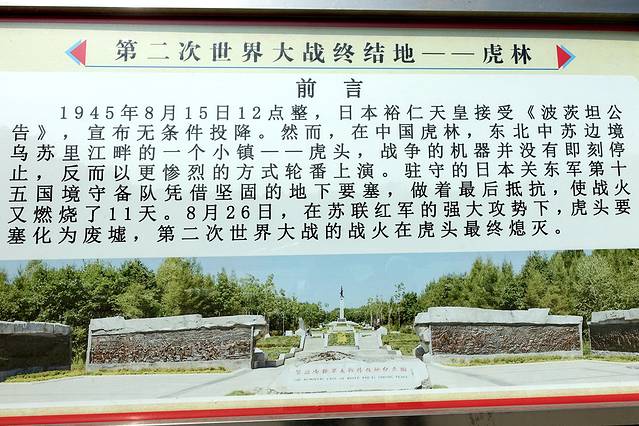 第二次世界大战终结地——虎林
前言
1945年8月15日12点整，日本裕仁天皇接受《波茨坦公
告》，宣布无条件投降。然而，在中国虎林，东北中苏边境
乌苏里江畔的一个小镇——虎头，战争的机器并没有即刻停
止，反而以更惨烈的方式轮番上演。驻守的日本关东军第十
五国境守备队凭借坚固的地下要塞，做着最后抵抗，使战火
又燃烧了11天。8月26日，在苏联红军的强大攻势下，虎头要
塞化为废墟，第二次世界大战的战火在虎头最终熄灭。